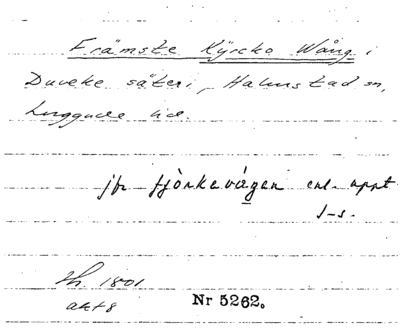 Främste Kyrcko Wång i
Duveke säteri, Halmstad sn,
Luggude hd.
jfr fjörkevågen enl. uppt
J-s.
Sh. 1801
akt 8
Nr 5262.